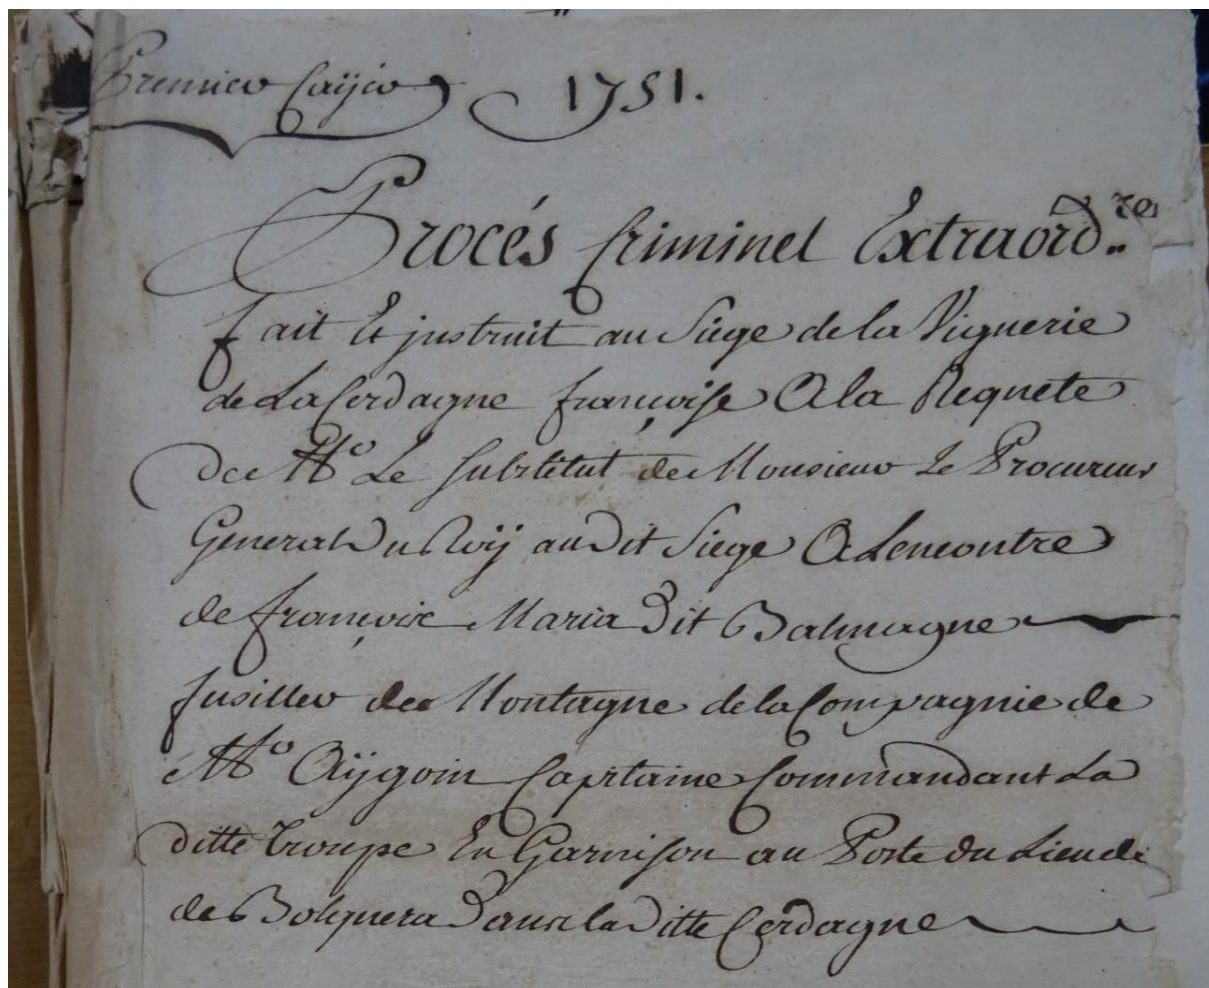 Premier Cayer 1751.
Procés Criminel Extraord.re
fait Et jnstruit au Siege de la Viguerie
de La Cerdagne françoise A la Requete
de Mr Le Substitut de Monsieur Le Procureur
General Du Roÿ au Dit Siege A Lencontre
de françoix Maria Dit Balmagne
fusiller de Montagne de la Compagnie de
Mr Aÿgoin Capitaine Commandant La
ditte troupe En Garnison au Poste du Lieu de
de Bolquera Dans la Ditte Cerdagne